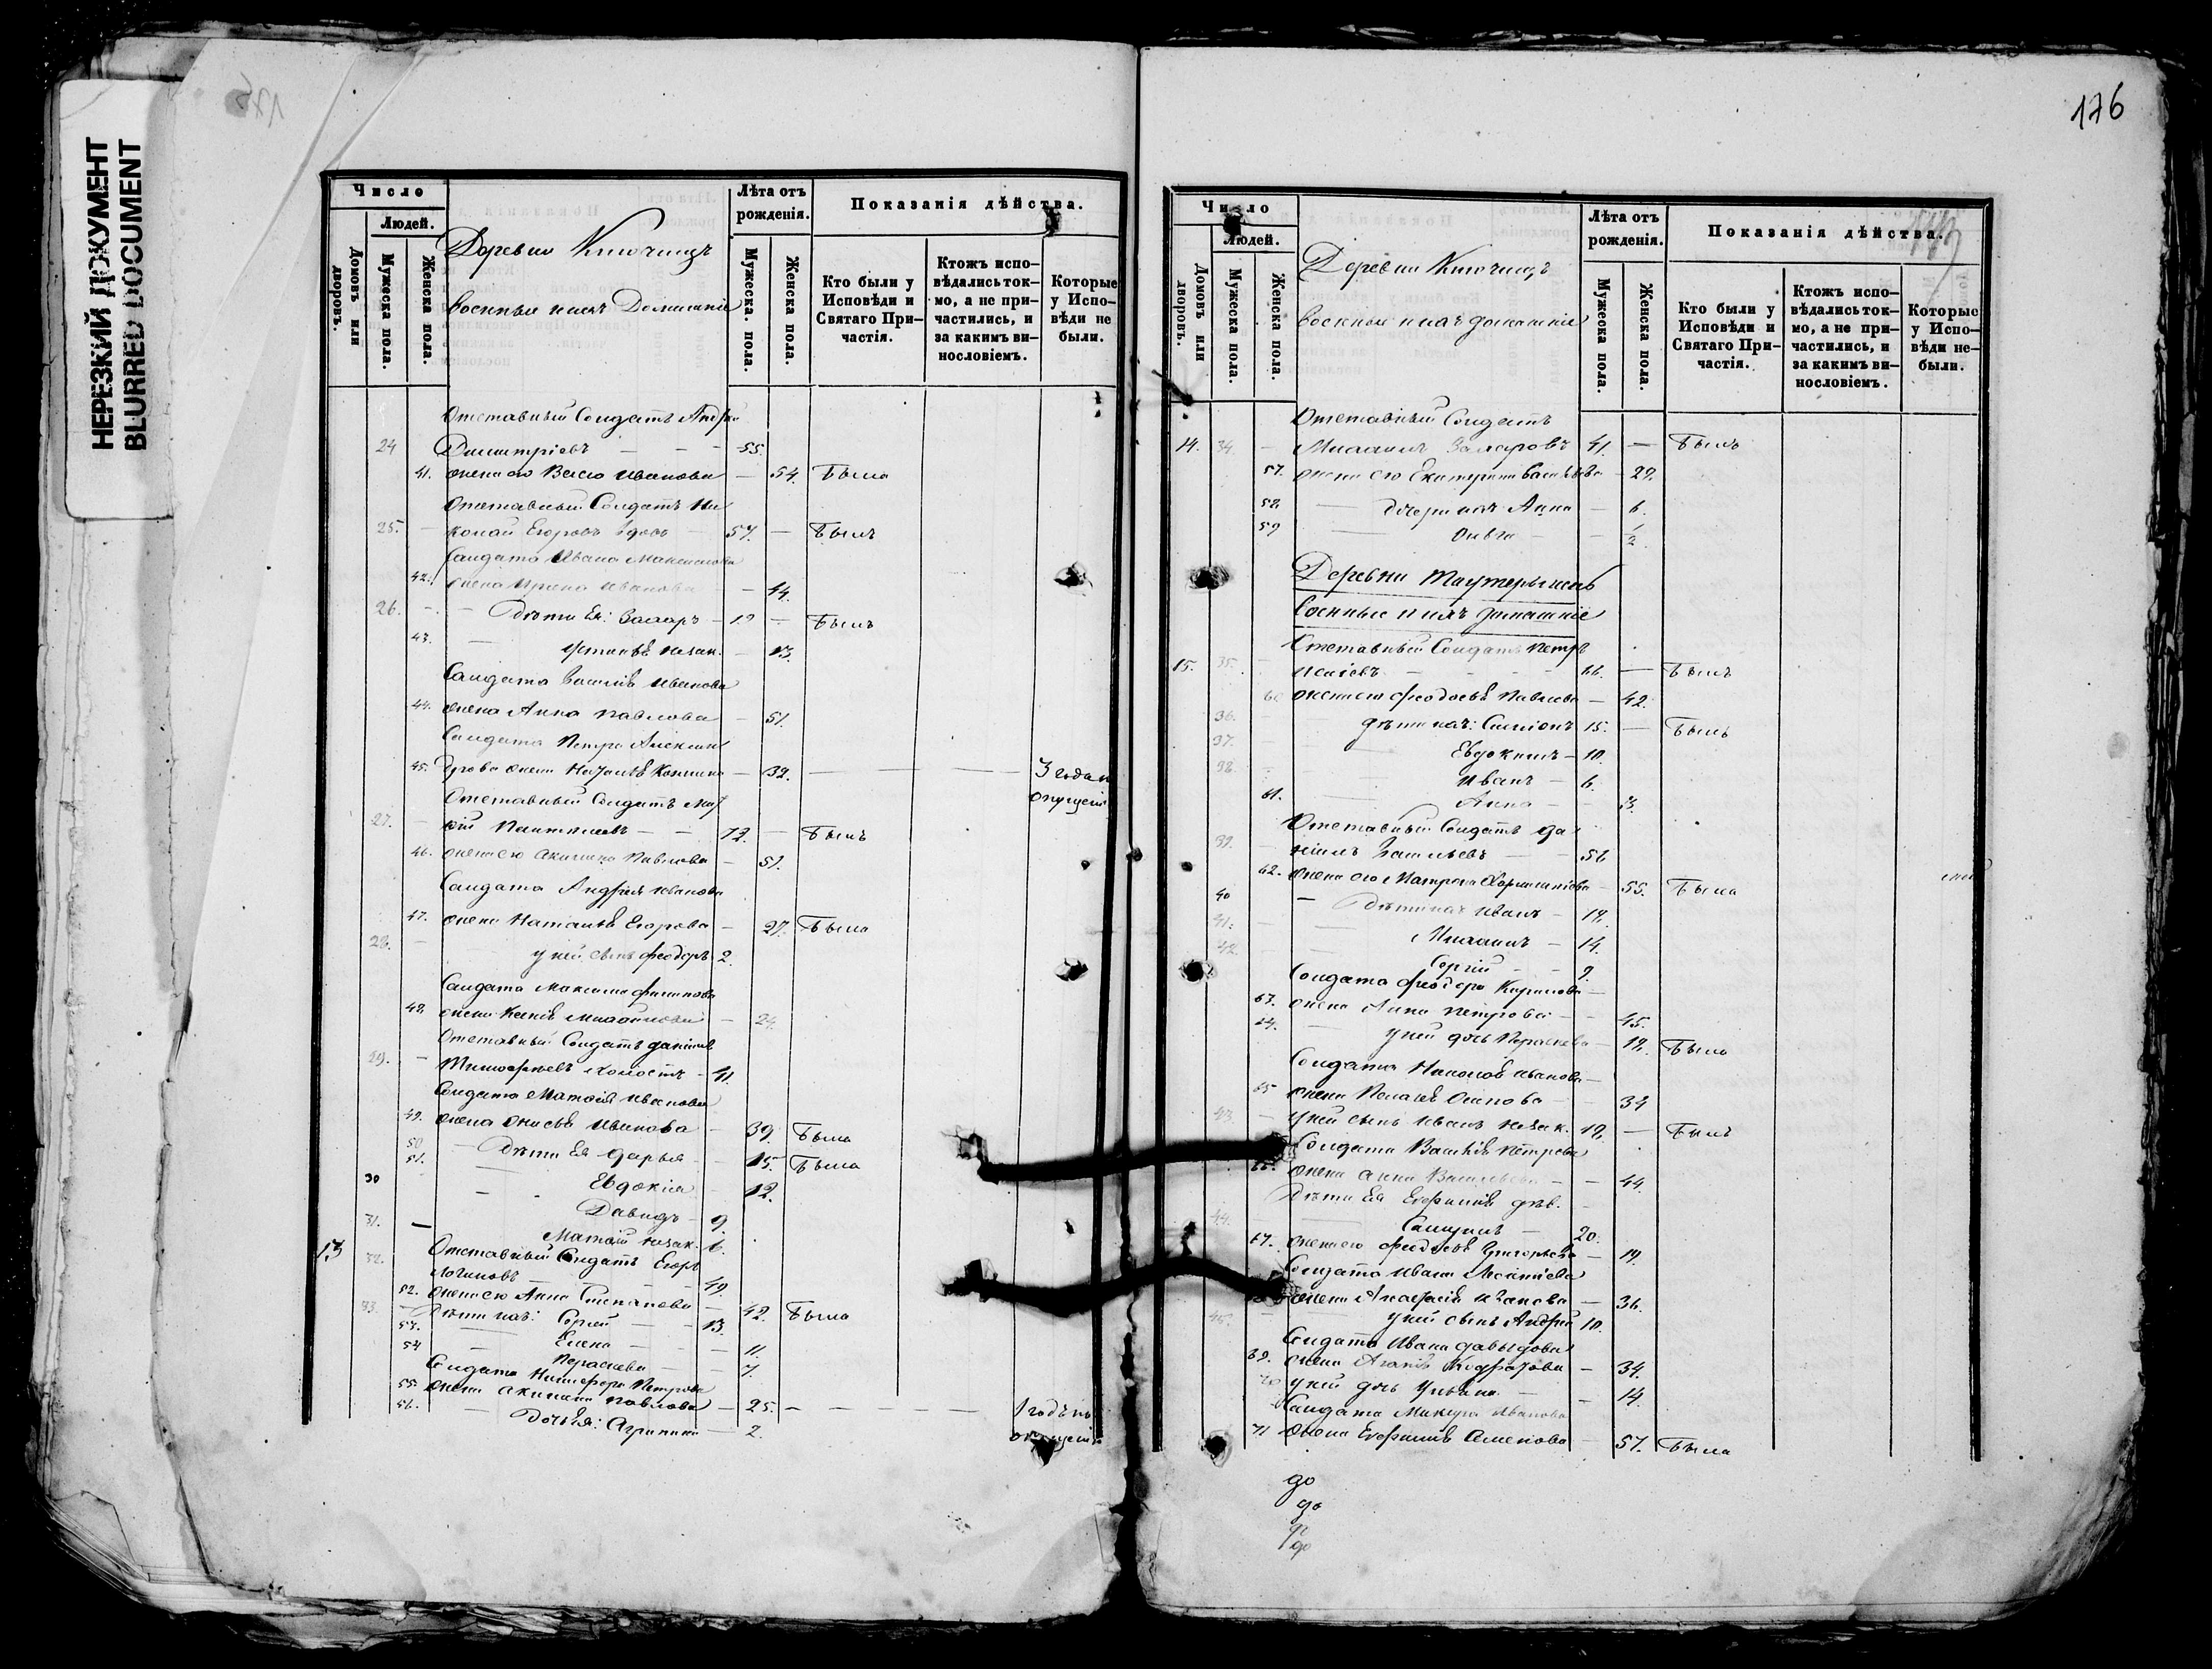 НЕРЕЗКИЙ ДОКУМЕНТ
BLURRED DOCUMENT
175
Число
Людей.
Домовъ или дворовъ.
Мужеска пола.
Женска пола.
Деревни Ключищъ
военные и ихъ Домашніе
Лѣта отъ рожденія.
Мужеска пола.
Женска пола.
Показанія дѣйства.
Кто были у Исповѣди и Святаго Причастія.
Ктожъ исповѣдались токмо, а не причастились, и за какимъ винословіемъ.
Которые у Исповѣди не были.
Отставный Солдатъ Андрей
24 Димитріевъ — 55.
41. жена его Васса Иванова — 54. Была
Отставный Солдатъ Ни
25. колай Егоровъ вдовъ 57. — Былъ
Солдата Ивана Максимова
42. жена Ирина Иванова — 44.
26. Дѣти Ея: Захаръ — 19 — Былъ
43. Устинья незак. — 13.
Солдата Василія Иванова
44. жена Анна Павлова — 51.
Солдата Петра Алексан
45. дрова жена Наталья — 39. — 3 года по
Отставный Солдатъ опущені
27. 72. — Былъ
46. жена его Акилина Павлова — 51.
Солдата Андрея Иванова
47. жена Наталья Егорова — 27. Была
28. у ней сынъ Феодоръ 2.
Солдата Максима Филипова
48. жена Ксенія Михайлова — 24.
Отставный Солдатъ Даніилъ
29. Тимофеевъ холостъ — 41.
Солдата Матфія Иванова
49. жена Анисья Иванова — 39. Была
50 Дѣти Ея Дарья — 15. Была
51. Евдокія 12.
30 Давидъ — 9.
31. Матфій незак. 6.
13 Отставный Солдатъ Егоръ
32. Логиновъ — 49.
52. жена его Анна Степанова — 42. Была
33. Дѣти ихъ: Сергій — 13.
53. Елена — 11.
54 Параскева — 7.
Солдата Никифора Петрова
55. жена Акилина Павлова — 25. — 1 годъ по
56. Дочь Ея: Агрипина — 2. опущені
176
Число
Людей.
Домовъ или дворовъ.
Мужеска пола.
Женска пола.
Деревни Ключищъ
военные и ихъ домашніе
Лѣта отъ рожденія.
Мужеска пола.
Женска пола.
Показанія дѣйства.
Кто были у Исповѣди и Святаго Причастія.
Ктожъ исповѣдались токмо, а не причастились, и за какимъ винословіемъ.
Которые у Исповѣди не были.
Отставный Солдатъ
14. 34. Михаилъ Захаровъ 41. — Былъ
57. жена его Екатерина Васильева — 29.
58. дочери ихъ Анна — 6.
59 Ольга — 1/2.
Деревни
Военные и ихъ домашніе
Отставный Солдатъ Петръ
15. 35. Исаіевъ — 66. — Былъ
60. жена его Феодосья Павлова — 42.
36. дѣти ихъ: Симіонъ 15. — Былъ
37. Евдокимъ — 10.
38. Иванъ — 6.
61. Анна — 3.
Отставный Солдатъ Да
39. ніилъ Васильевъ — 56
62. жена его Матрена — 55. Была
40 Дѣти ихъ Иванъ — 19.
41. Михаилъ — 14.
42. Сергій — 9.
Солдата Феодора Кирилова
63. жена Анна Петрова — 45.
64. у ней дочь Параскева — 19. Была
Солдата Николая Иванова
65 жена Пелагея Осипова — 34
43. у ней сынъ Иванъ незак. 19. — Былъ
Солдата Василія Петрова
66. жена Анна Васильева — 44.
Дѣти Ея Евфимія дѣв.
44. Самуилъ — 20.
67. жена его Феодосья Григорьева — 19.
Солдата Ивана Леонтіева
жена Анафасія Иванова — 36.
45. у ней сынъ Андрей 10.
Солдата Ивана Давыдова
69. жена Агафія — 34.
70 у ней дочь Ульяна — 14.
Солдата Иванова
71 жена Евфимія Семенова — 57. Была
до
до
до